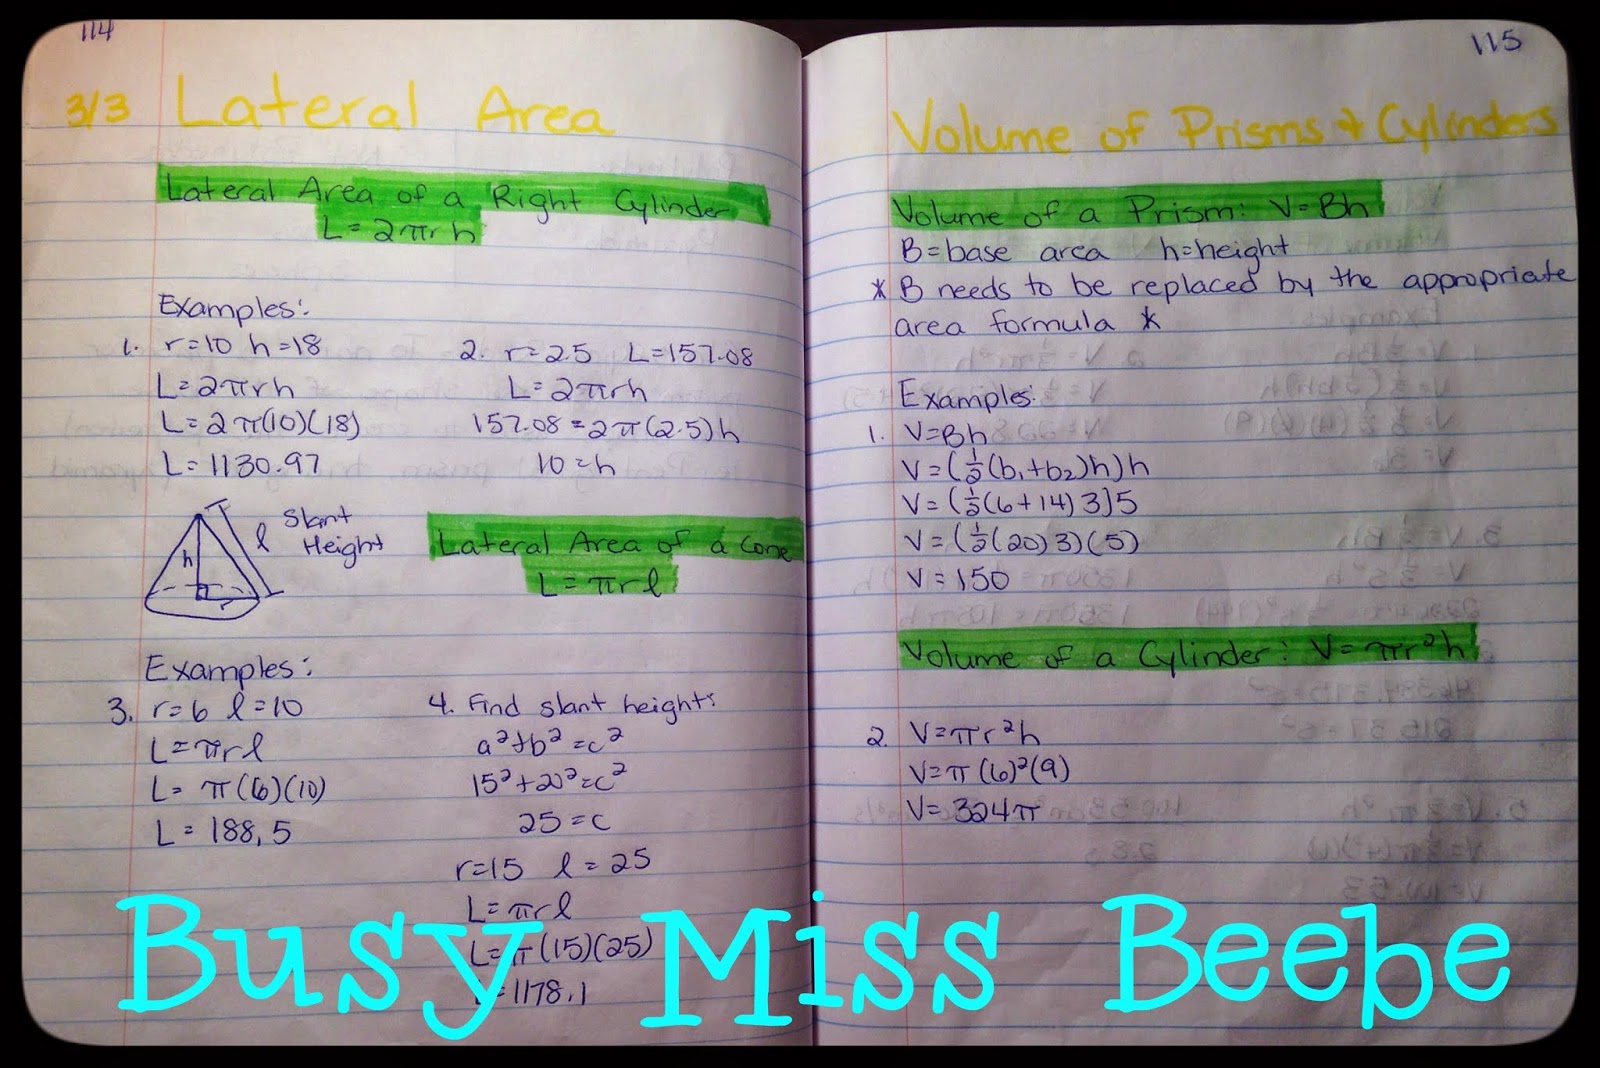 114
3/3 Lateral Area
Lateral Area of a Right Cylinder
L=2πrh
Examples:
1. r=10 h=18
L=2πrh
L=2π(10)(18)
L=1130.97
2. r=2.5 L=157.08
L=2πrh
157.08=2π(2.5)h
10=h
h
r
l Slant
Height
Lateral Area of a Cone
L=πrl
Examples:
3. r=6 l=10
L=πrl
L=π(6)(10)
L=188,5
4. Find slant height:
a²+b²=c²
15²+20²=c²
25=c
r=15 l=25
L=πrl
L=π(15)(25)
L=1178.1
115
Volume of Prisms + Cylinders
Volume of a Prism: V=Bh
B=base area h=height
* B needs to be replaced by the appropriate
area formula *
Examples:
1. V=Bh
V=(½(b₁+b₂)h)h
V=(½(6+14)3)5
V=(½(20)3)(5)
V=150
Volume of a Cylinder: V=πr²h
2. V=πr²h
V=π(6)²(9)
V=324π
Busy Miss Beebe